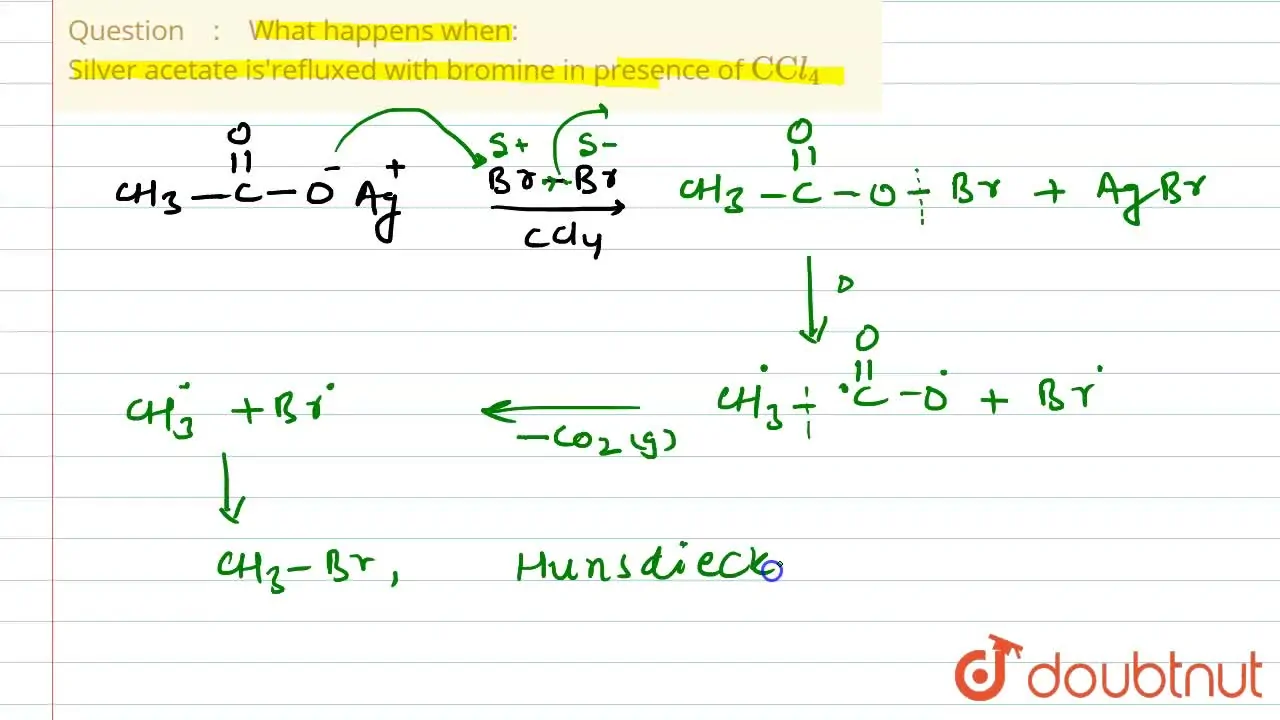 Question : What happens when:
Silver acetate is'refluxed with bromine in presence of CCl₄
O O
|| δ+ δ− ||
CH₃ — C — O⁻ Ag⁺ Br — Br CH₃ — C — O — Br + AgBr
CCl₄
Δ
O
||
CH₃˙ + Br˙ −CO₂(g) CH₃˙ ˙C — O˙ + Br˙
CH₃ — Br, Hunsdieck
doubtnut